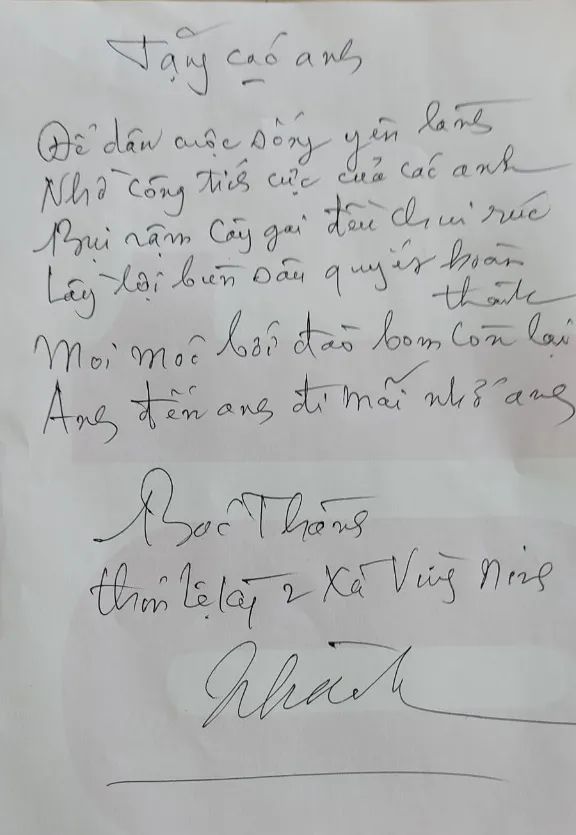 Tặng các anh
Để dân cuộc sống yên lành
Nhờ công tiếc cực của các anh
Bụi rậm cây gai đều chui rúc
Lầy lội bùn sâu quyết hoàn
thành
Moi móc bới đào bom còn lại
Anh đến anh đi mãi nhớ anh
Bác Thành
thôn Lệ Kỳ 2 Xã Vĩnh Ninh
Thành